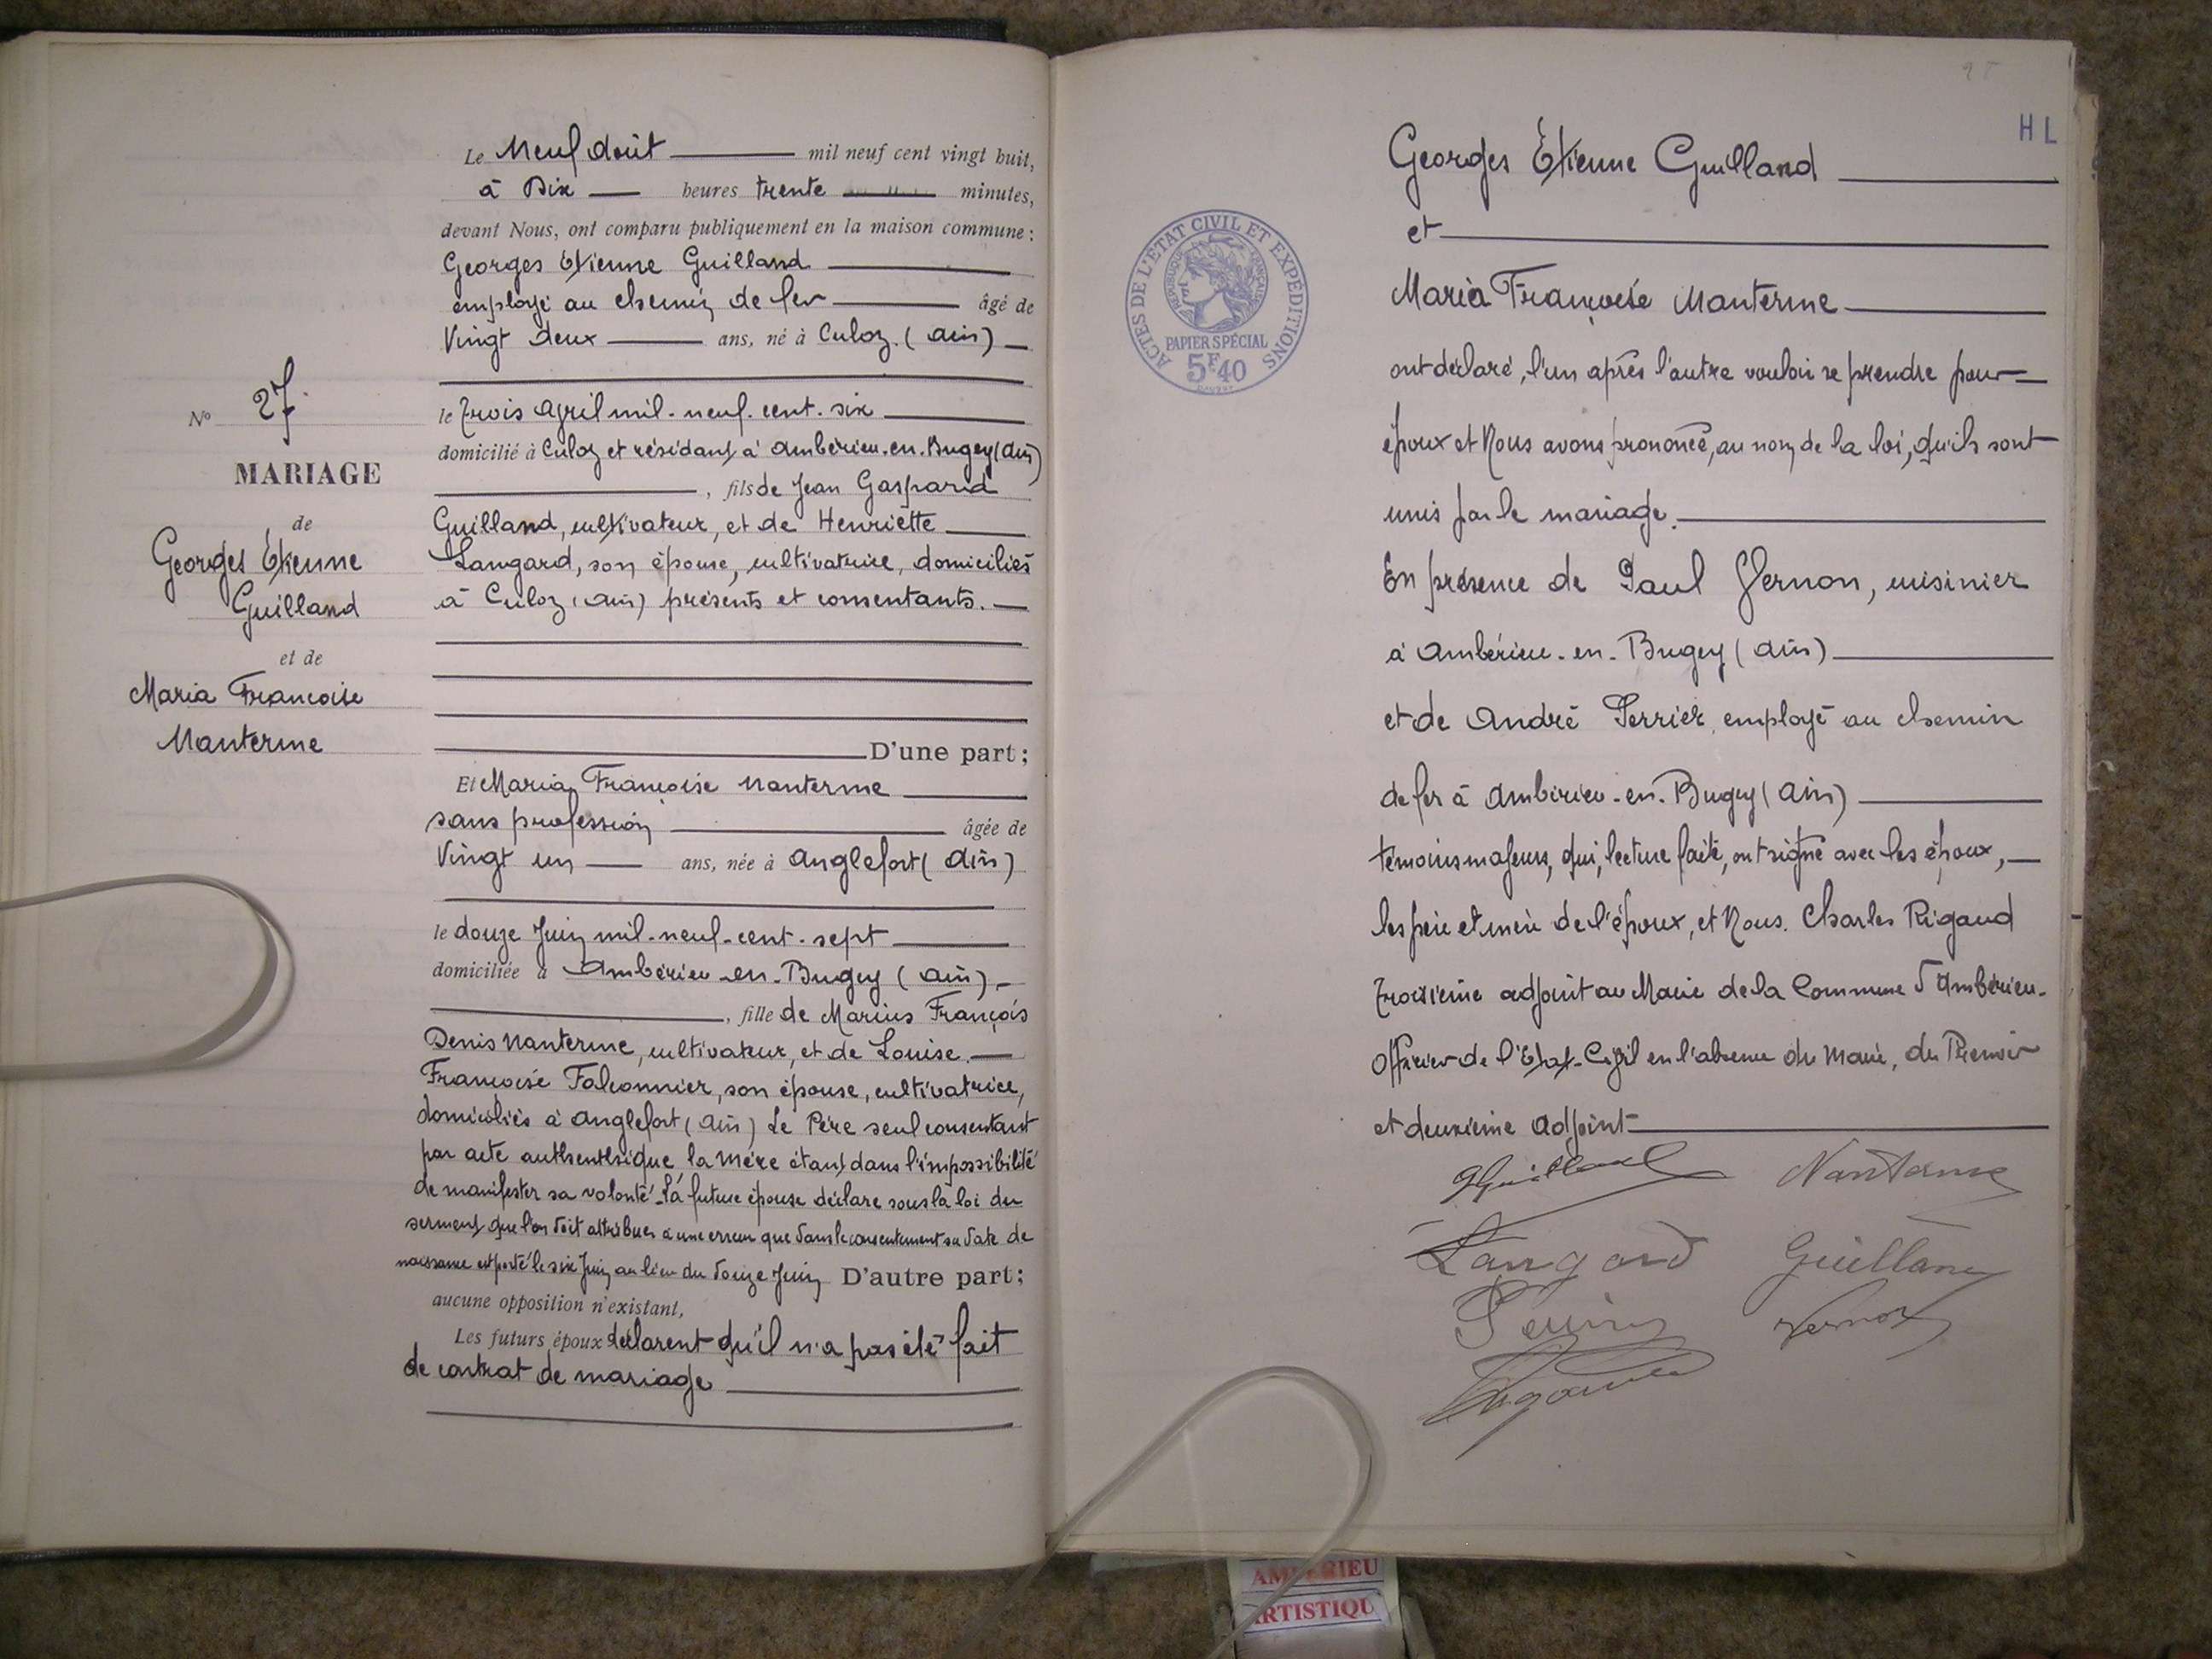 Nº 27
MARIAGE
de
Georges Étienne
Guilland
et de
Maria Francoise
Nanterme
Le Neuf Août mil neuf cent vingt huit,
à Dix heures trente minutes,
devant Nous, ont comparu publiquement en la maison commune :
Georges Étienne Guilland
employé au chemin de fer âgé de
Vingt deux ans, né à Culoz (Ain)
le trois avril mil-neuf-cent-six
domicilié à Culoz et résidant à Ambérieu-en-Bugey (Ain)
, fils de Jean Gaspard
Guilland, cultivateur, et de Henriette
Langard, son épouse, cultivatrice, domiciliés
à Culoz (Ain) présents et consentants.
D'une part;
Et Maria Françoise Nanterme
sans profession âgée de
Vingt un ans, née à Anglefort (Ain)
le douze Juin mil-neuf-cent-sept
domiciliée à Ambérieu-en-Bugey (Ain)
, fille de Marius François
Denis Nanterme, cultivateur, et de Louise
Françoise Falconnier, son épouse, cultivatrice,
domiciliés à Anglefort (Ain) Le Père seul consentant
par acte authenthsique la Mère étant dans l'impossibilité
de manifester sa volonté. La future épouse déclare sous la loi du
serment que l'on doit attribuer à une erreur que dans le consentement sa date de
naissance est porté le six Juin au lieu du douze Juin D'autre part;
aucune opposition n'existant,
Les futurs époux déclarent qu'il n'a pas été fait
de contrat de mariage
HL
ACTES DE L'ÉTAT CIVIL ET EXPÉDITIONS
RÉPUBLIQUE FRANÇAISE
PAPIER SPÉCIAL
5F40
Georges Étienne Guilland
et
Maria Françoise Nanterme
ont déclaré, l'un après l'autre vouloir se prendre pour
époux et Nous avons prononcé, au nom de la loi, qu'ils sont
unis par le mariage.
En présence de Paul Vernon, cuisinier
à Ambérieu-en-Bugey (Ain)
et de André Perrier, employé au chemin
de fer à Ambérieu-en-Bugey (Ain)
témoins majeurs, qui, lecture faite, ont signé avec les époux,
les père et mère de l'époux, et Nous. Charles Rigaud
troisième adjoint au Maire de la Commune d'Ambérieu-
Officier de l'État-Civil en l'absence du Maire, du Premier
et deuxième adjoint
GGuilland Nanterme
Langard Guilland
Vernon
AMBÉRIEU
ARTISTIQU